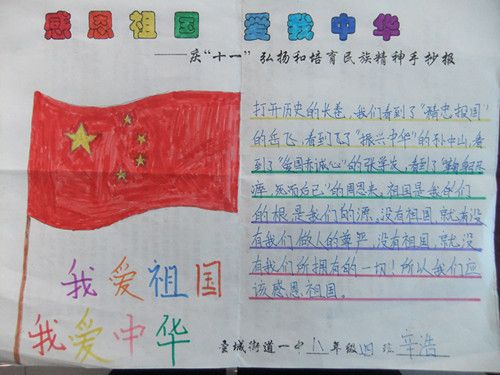 感恩祖国 爱我中华
——庆“十一”弘扬和培育民族精神手抄报
打开历史的长卷，我们看到了“精忠报国”
的岳飞，看到了“振兴中华”的孙中山，看
到了“爱国赤诚心”的张学友，看到了
死而后已”的周恩来，祖国是我们
的根是我们的源，没有祖国，就没
有我们做人的尊严，没有祖国，就没
有我们所拥有的一切！所以我们应
该感恩祖国。
我爱祖国
我爱中华
城街道一中 八年级 四班 辛浩